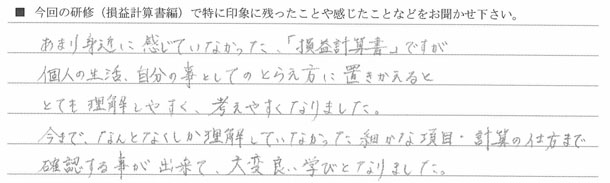 ■ 今回の研修（損益計算書編）で特に印象に残ったことや感じたことなどをお聞かせ下さい。
あまり身近に感じていなかった、「損益計算書」ですが
個人の生活、自分の事としてのとらえ方に置きかえると
とても理解しやすく、考えやすくなりました。
今まで、なんとなくしか理解していなかった細かな項目・計算の仕方まで
確認する事が出来て、大変良い学びとなりました。